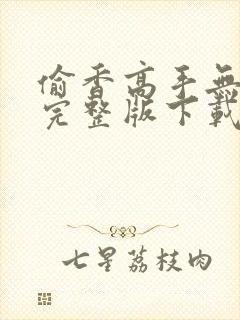 偷香高手無
完整版下載
七星荔枝肉